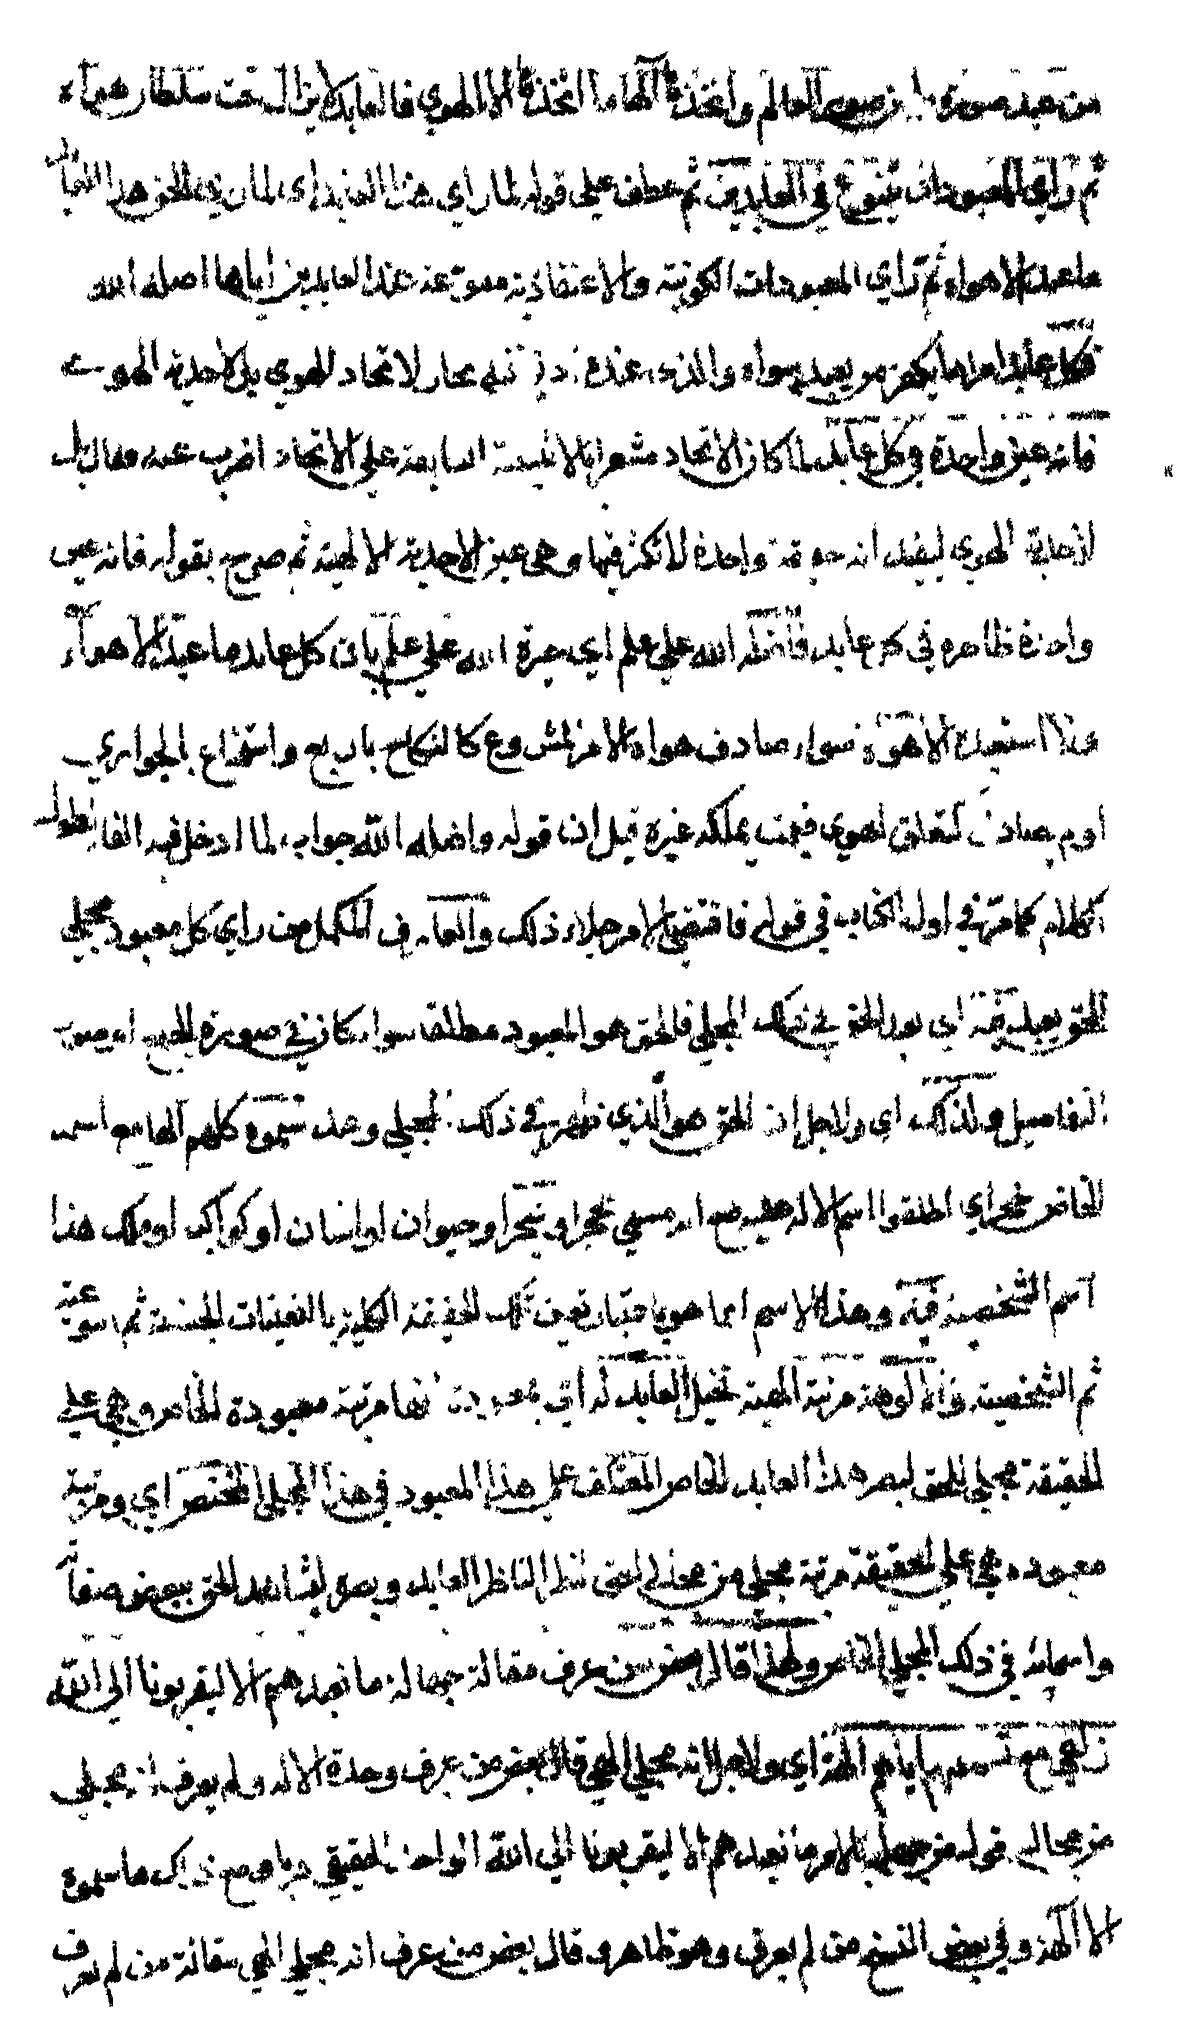 من عبد صورة ما من صور العالم واتخذها آلها ما اتخذها الا بالهوى فالعابد لا يزال تحت سلطان هواه
ثم رأى المعبودات تتنوع في العابدين ثم عطف على قوله لما رأى هذا العابد اى لما رأى الحق هذا العابد
ما عبد الا هواه ثم رأى المعبودات الكونية والاعتقادية متنوعة عند العابدين اياها اضله الله
فكل عابد امرا ما يكفر من يعبد سواه والذى عنده ادنى تنبه يحار لاتحاد الهوى بل لاحدية الهوى
فانه عين واحدة في كل عابد لما كان الاتحاد مشعرا بالاثنينية السابقة على الاتحاد اضرب عنه وقال بل
لاحدية الهوى ليفيد انه حقيقة واحدة لا تكثر فيها وهي عين الاحدية الالهية ثم صرح بقوله فانه عين
واحدة ظاهرة في كل عابد فاضله الله على علم اى حيرة الله على علم بان كل عابد ما عبد الا هواه
ولا استعبده الا هواه سواء صادف هواه الامر المشروع كالنكاح باربع واستمتاع بالجواري
او لم يصادف كتعلق الهوى فيمن يملكه غيره قيل ان قوله واضله الله جواب لما ادخل فيه الفا لطول
الكلام كما مر في اول الكتاب في قوله فاقتضى الامر جلاء ذلك والعارف المكمل من رأى كل معبود مجلى
للحق يعبد فيه اى يعبد الحق في ذلك المجلى فالحق هو المعبود مطلقا سواء كان في صورة الجمع او صور
التفاصيل ولذلك اى ولاجل ان الحق هو الذي ظهر في ذلك المجلى وعبد سموه كلهم آلها مع اسمه
الخاص بحجر اى اطلقوا اسم الاله عليه مع انه مسمى بحجر او شجر او حيوان او انسان او كواكب او ملك هذا
اسم الشخصية فيه وهذا الاسم انما هو باعتبار تعين تلك الحقيقة الكلية بالتعينات الجنسية ثم النوعية
ثم الشخصية والالوهة مرتبة الهية تخيل العابد له انها مرتبة معبودة الخاص وهي على
الحقيقة مجلى للحق لبصر هذا العابد الخاص المعتكف على هذا المعبود في هذا المجلى المختص اى ومرتبة
معبوده هي على الحقيقة مرتبة مجلى من مجالى الحق لنظر الناظر العابد وبصره ليشاهد الحق ببعض صفاته
واسمائه في ذلك المجلى الخاص ولهذا قال بعض من عرف مقالة جهالة ما نعبدهم الا ليقربونا الى الله
زلفى مع تسميتهم اياهم آلهة اى ولاجل انه مجلى الهي قال بعض من عرف وحدة الاله ولم يعرف انه مجلى
من مجاليه قوله من جهل بالامر ما نعبدهم الا ليقربونا الى الله الواحد الحقيقي قربا ومع ذلك ما سموه
الا آلهة وفي بعض النسخ من لم يعرف وهو ظاهر وقال بعض من عرف انه مجلى الهي مقالة من لم يعرف